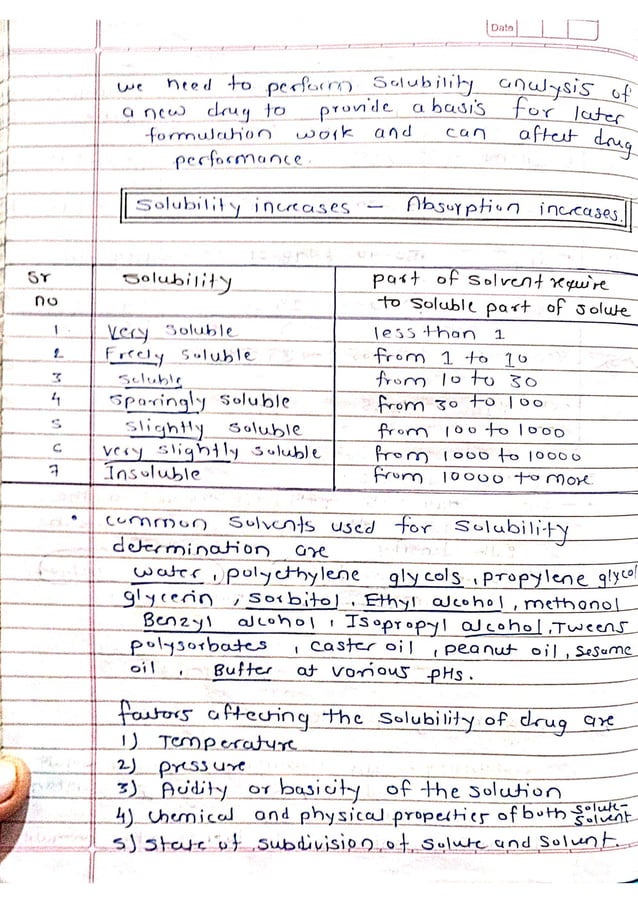 Date
we need to perform Solubility analysis of
a new drug to provide a basis for later
formulation work and can affect drug
performance.
Solubility increases – Absorption increases.
Sr no | Solubility | part of solvent require to soluble part of solute
1 | Very soluble | less than 1
2 | Freely soluble | from 1 to 10
3 | Soluble | from 10 to 30
4 | Sparingly soluble | from 30 to 100
5 | Slightly soluble | from 100 to 1000
6 | very slightly soluble | from 1000 to 10000
7 | Insoluble | from 10000 to more
• common solvents used for solubility
determination are
water, polyethylene glycols, propylene glycol
glycerin, sorbitol, Ethyl alcohol, methonol
Benzyl alcohol, Isopropyl alcohol, Tweens
polysorbates, caster oil, peanut oil, sesame
oil, Buffer at various pHs.
factors affecting the solubility of drug are
1) Temperature
2) pressure
3) Acidity or basicity of the solution
4) chemical and physical properties of both solute-solvent
5) state of subdivision of solute and solvent.